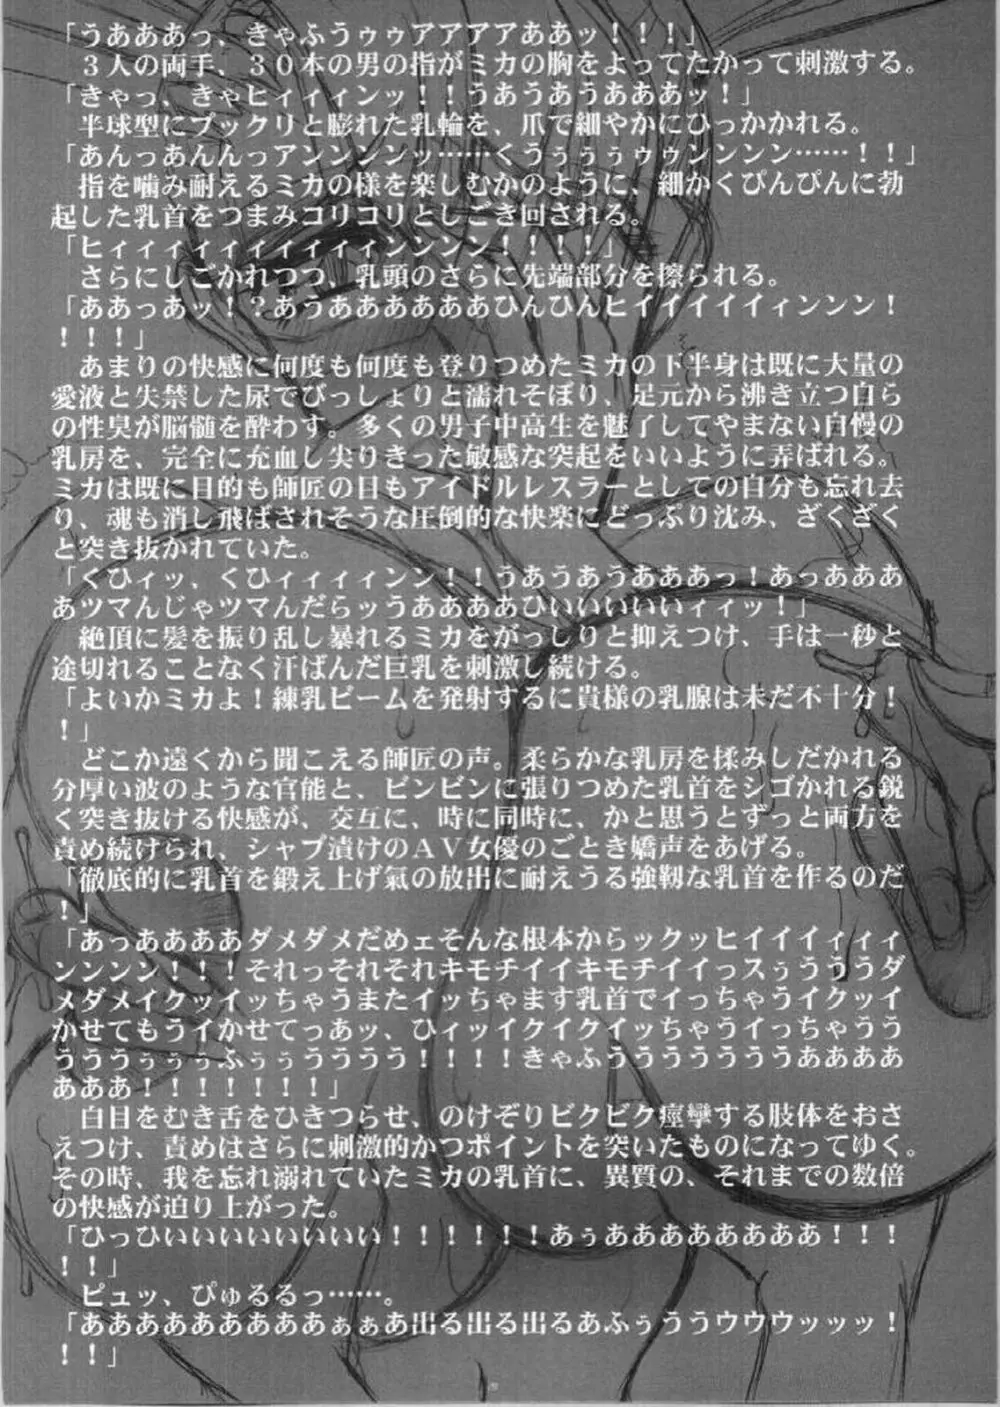 「うあああっ、きゃふうゥゥアアアアああッ！！！」
３人の両手、３０本の男の指がミカの胸をよってたかって刺激する。
「きゃっ、きゃヒィィィンッ！！うあうあうあああッ！」
半球型にプックリと膨れた乳輪を、爪で細やかにひっかかれる。
「あんっあんんっアンンンンッ……くうぅぅぅゥゥンンンン……！！」
指を噛み耐えるミカの様を楽しむかのように、細かくぴんぴんに勃
起した乳首をつまみコリコリとしごき回される。
「ヒィィィィィィィィィィンンンン！！！！」
さらにしごかれつつ、乳頭のさらに先端部分を擦られる。
「ああっあッ！？あうああああああひんひんヒイイイイイィンンン！
！！！」
あまりの快感に何度も何度も登りつめたミカの下半身は既に大量の
愛液と失禁した尿でびっしょりと濡れそぼり、足元から沸き立つ自ら
の性臭が脳髄を酔わす。多くの男子中高生を魅了してやまない自慢の
乳房を、完全に充血し尖りきった敏感な突起をいいように弄ばれる。
ミカは既に目的も師匠の目もアイドルレスラーとしての自分も忘れ去
り、魂も消し飛ばされそうな圧倒的な快楽にどっぷり沈み、ざくざく
と突き抜かれていた。
「くひィッ、くひィィィィンン！！うあうあうあああっ！あっあああ
あツマんじゃツマんだらッうああああひいいいいいィィッ！」
絶頂に髪を振り乱し暴れるミカをがっしりと抑えつけ、手は一秒と
途切れることなく汗ばんだ巨乳を刺激し続ける。
「よいかミカよ！練乳ビームを発射するに貴様の乳腺は未だ不十分！
！」
どこか遠くから聞こえる師匠の声。柔らかな乳房を揉みしだかれる
分厚い波のような官能と、ビンビンに張りつめた乳首をシゴかれる鋭
く突き抜ける快感が、交互に、時に同時に、かと思うとずっと両方を
責め続けられ、シャブ漬けのＡＶ女優のごとき嬌声をあげる。
「徹底的に乳首を鍛え上げ氣の放出に耐えうる強靭な乳首を作るのだ
！」
「あっああああダメダメだめェそんな根本からックッヒイイイィィィ
ンンンン！！！それっそれそれキモチイイキモチイイっスぅうううダ
メダメイクッイッちゃうまたイッちゃます乳首でイっちゃうイクッイ
かせてもうイかせてっあッ、ひィッイクイクイッちゃうイっちゃうう
うううぅぅぅふぅぅうううう！！！！きゃふうううううううああああ
あああ！！！！！！！」
白目をむき舌をひきつらせ、のけぞりビクビク痙攣する肢体をおさ
えつけ、責めはさらに刺激的かつポイントを突いたものになってゆく。
その時、我を忘れ溺れていたミカの乳首に、異質の、それまでの数倍
の快感が迫り上がった。
「ひっひいいいいいいいい！！！！！！あぅああああああああ！！！
！！」
ピュッ、ぴゅるるっ……。
「ああああああああああぁぁあ出る出る出るあふぅううウウウッッッ！
！！」